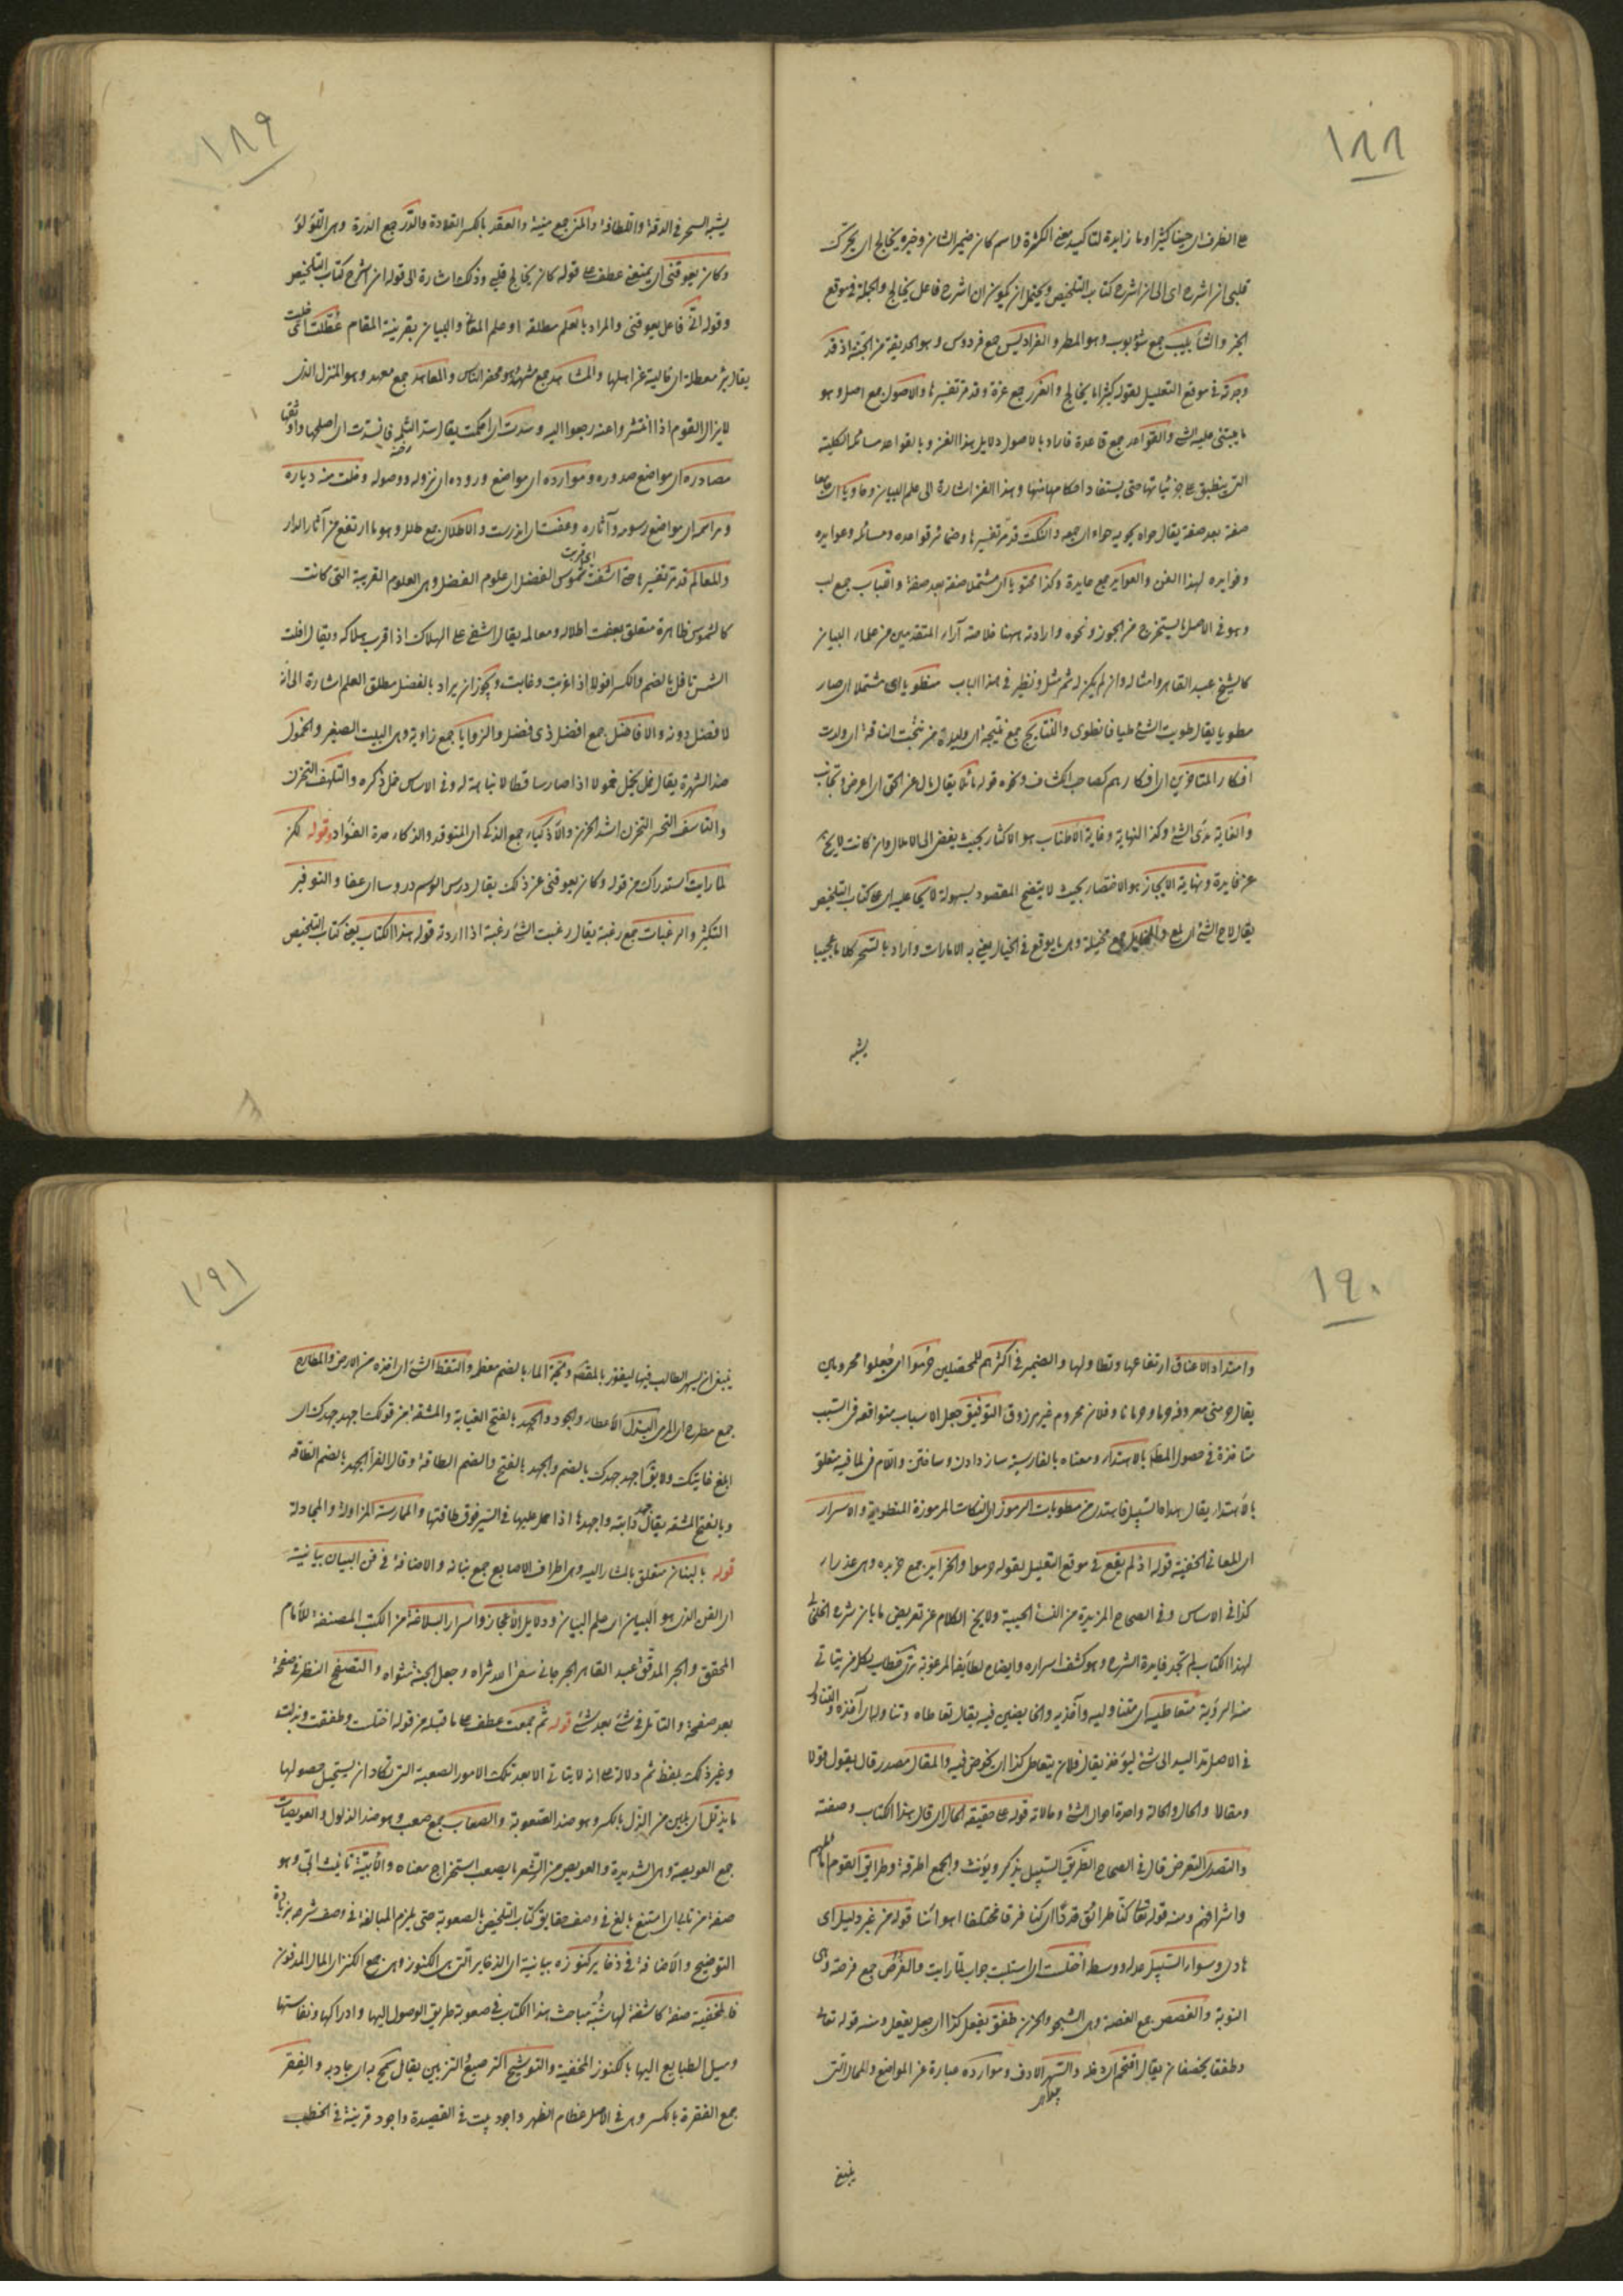 ١٨٨
على الظرف اى حينا كثيرا وما زايدة لتاكيد معنى الكثرة واسم كان ضمير الشان وخبره يخالج اى يحرك
قلبى ان اشرح اى الى ان اشرح كتاب التلخيص ويحتمل ان يكون ان اشرح فاعل يخالج والجملة فى موقع
الخبر والشآبيب جمع شؤبوب وهو المطر والفراديس جمع فردوس وهو الحديقة من الجنة اذ قد
وجدته فى موقع التعليل لقوله كثيرا ما يخالج والغرر جمع غرة وقد مر تفسيرها والاصول جمع اصل وهو
ما يبتنى عليه الشئ والقواعد جمع قاعدة فاراد بالاصول دلايل هذا الفن وبالقواعد مسائله الكلية
التى ينطبق على جزئياتها حتى يستفاد احكامها منها وهذا الفن اشارة الى علم البيان وحاويا اى جامعا
صفة بعد صفة يقال حواه يحويه حواء اى جمعه والنكت قد مر تفسيرها وضمائر قواعده ومسائله وعوايده
وفوايده لهذا الفن والعوايد جمع عايدة وكذا محتويا اى مشتملا صفة بعد صفة والباب جمع لب
وهو فى الاصل ما يستخرج من الجوز ونحوه وارادته ههنا خلاصة آراء المتقدمين من علماء البيان
كالشيخ عبد القاهر وامثاله وان لم يكن له ثم مثل ونظير فى هذا الباب منطويا اى مشتملا اى صار
مطويا يقال طويت الشئ طيا فانطوى والنتايج جمع نتيجة اى وليدة من نتجت الناقة اى ولدت
افكار المتاخرين اى افكارهم كصاحب الكشاف ونحوه قوله مائلا يقال مال عن الحق اى اعرض وتجانب
والغاية مدى الشئ وكذا النهاية وغاية الاطناب هو الاكثار بحيث يفضى الى الاملال وان كانت لا يخ
عن فايدة ونهاية الايجاز هو الاختصار بحيث لا يتضح المقصود بسهولة لايحا عليه اى على كتاب التلخيص
يقال لاح الشئ اى لمع والمخايل جمع مخيلة وهى ما يوقع فى الخيال يعنى به الامارات واراد بالسحر كلاما عجيبا
يشبه
١٨٩
يشبه السحر فى الدقة واللطافة والمنن جمع منة والعقد بالكسر القلادة والدرر جمع الدرة وهى اللؤلؤ
وكان يعوقنى اى يمنعنى عطف على قوله كان يخالج قلبى وذلك اشارة الى قوله ان اشرح كتاب التلخيص
وقوله انى فاعل يعوقنى والمراد بالعلم مطلقه او علم المعانى والبيان بقرينة المقام عطلت اى خلت
يقال بئر معطلة اى خالية عن اهلها والمشاهد جمع مشهد وهو محضر الناس والمعاهد جمع معهد وهو المنزل الذى
لا يزال القوم اذا انتشروا عنه رجعوا اليه وسدت اى احكمت يقال سد الثلمة فانسدت اى اصلحها واوثقها
مصادره اى مواضع صدوره وموارده اى مواضع وروده اى نزوله ووصوله وخلت منه دياره
ومراسمه اى مواضع رسومه وآثاره وعفت اى اندرست والاطلال جمع طلل وهو ما ارتفع من آثار الدار
والمعالم قد مر تفسيرها حتى اشفت شموس الفضل اى علوم الفضل وهى العلوم القريبة التى كانت
كالشموس ظاهرة متعلق بعفت اطلاله ومعالمه يقال اشفى على الهلاك اذا قرب هلاكه ويقال افلت
الشمس تافل بالضم والكسر افولا اذا غربت وغابت ويجوز ان يراد بالفضل مطلق العلم اشارة الى انه
لا فضل دونه والافاضل جمع افضل ذى فضل والزوايا جمع زاوية وهى البيت الصغير والخمول
ضد الشهرة يقال خمل يخمل خمولا اذا صار ساقطا لا نباهة له وفى الاساس خمل ذكره والتلهف التحزن
والتاسف التحسر التحزن اشد الحزن والاذكياء جمع الذكى اى المتوقد والذكاء حدة الفؤاد قوله لكن
لما رايت استدراك من قوله وكان يعوقنى عن ذلك يقال درس الرسم دروسا اى عفا والتوفير
التكثير والرغبات جمع رغبة يقال رغبت الشئ رغبة اذا اردته قوله هذا الكتاب يعنى كتاب التلخيص
١٩٠
وامتداد الاعناق ارتفاعها وتطاولها والضمير فى اكثرهم للمحصلين حرموا اى جعلوا محرومين
يقال حرمنى معروفه حرما وحرمانا وفلان محروم غير مرزوق التوفيق جعل الاسباب متوافقة فى التسبب
متاخذة فى حصول المطلب بالاستداد ومعناه بالفارسية ساز دادن وساختن واللام فى لما فيه متعلق
بالاستداد يقال هداه السبيل فاهتدى من مطويات الرموز اى النكات المرموزة المنطوية والاسرار
اى المعانى الخفية قوله اذ لم يقع فى موقع التعليل لقوله حرموا والخرايد جمع خريدة وهى عذراء
كذا فى الاساس وفى الصحاح الخريدة من النساء الحيية ولا يخ الكلام عن تعريض ما بان شرح الخلخالى
لهذا الكتاب لم تجد فايدة الشرح وهو كشف اسراره وايضاح لطايفه المرغوبة
منه الرؤية متعاطيه اى متناوليه وآخذيه والخايضين فيه يقال تعاطاه وتناوله اى آخذه والتناول
فى الاصل مد اليد الى شئ ليؤخذ يقال فلان يتعاطى كذا اى يخوض فيه والمقال مصدر قال يقول قولا
ومقالا والحال والحالة واحدة احوال الشئ وحالاته قوله على حقيقة الحال اى قال هذا الكتاب وصفته
والتصدى التعرض قال فى الصحاح الطريق السبيل يذكر ويؤنث والجمع اطرقة وطرائق القوم اماثلهم
واشرافهم ومنه قوله تعالى كنا طرائق قددا اى كنا فرقا مختلفا اهواءنا قوله من غير دليل اى
هادى وسواء السبيل عدله ووسطه اختلست اى استلبت جواب لما رايت والفرص جمع فرصة وهى
النوبة والغصص جمع الغصة وهى الشجى والحزن طفق يفعل كذا اى جعل يفعل ومنه قوله تعالى
وطفقا يخصفان يقال اقتحم اى دخله والسهر الارق وموارده عبارة عن المواضع والمحال التى
ينبغى
١٩١
ينبغى ان يسهر الطالب فيها ليفوز بالمقصد ولجة الماء بالضم معظمه والتقط الشئ اى اخذه من الارض والمطارح
جمع مطرح اى المرمى البذل الاعطاء والجود والجهد بالفتح الغاية والمشقة من قولك اجهد جهدك اى
ابلغ غايتك ولا يقال اجهد جهدك بالضم والجهد بالفتح والضم الطاقة وقال الفراء الجهد بالضم الطاقة
وبالفتح المشقة يقال جهد دابته واجهدها اذا حمل عليها فى السير فوق طاقتها والممارسة المزاولة والمجادلة
قوله بالبنان متعلق بالمشار اليه وهى اطراف الاصابع جمع بنانة والاضافة فى فن البيان بيانية
اى الفن الذى هو البيان اى علم البيان ودلايل الاعجاز واسرار البلاغة من الكتب المصنفة للامام
المحقق والحبر المدقق عبد القاهر الجرجانى سقى الله ثراه وجعل الجنة مثواه والتصفح النظر فى صفحة
بعد صفحة والتامل فى شئ بعد شئ قوله ثم جمعت عطف على ما قبله من قوله اختلست وطفقت وبذلت
وغير ذلك بلفظ ثم دلالة على انه لا يتاتى الا بعد تلك الامور الصعبة التى تكاد ان يستحيل حصولها
ما يذلل اى يلين من الذل بالكسر وهو ضد الصعوبة والصعاب جمع صعب وهو ضد الذلول والعويصات
جمع العويصة وهى الشديدة والعويص من الشعر ما يصعب استخراج معناه والابية تانيث ابى وهو
صفة من تابى اى امتنع بالغ فى وصف حقايق كتاب التلخيص بالصعوبة حتى يلزم المبالغة فى وصف شرحه بزيادة
التوضيح والاضافة فى ذخاير كنوزه بيانية اى الذخاير التى هى الكنوز وهى جمع الكنز اى المال المدفون
فالمخفية صفة كاشفة لها شبه مباحث هذا الكتاب فى صعوبة طريق الوصول اليها وادراكها ونفاستها
وميل الطبايع اليها بالكنوز المخفية والتوشيح الترصيع التزيين يقال سمح به اى جاد به والفقر
جمع الفقرة بالكسر وهى فى الاصل عظام الظهر واجود بيت فى القصيدة واجود قرينة فى الخطب